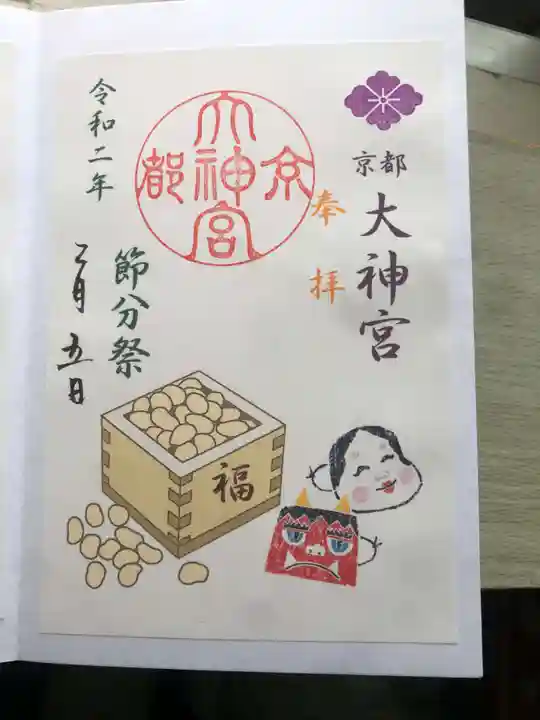 京都
大神宮
奉拝
京都大神宮
節分祭
令和二年
二月五日
福